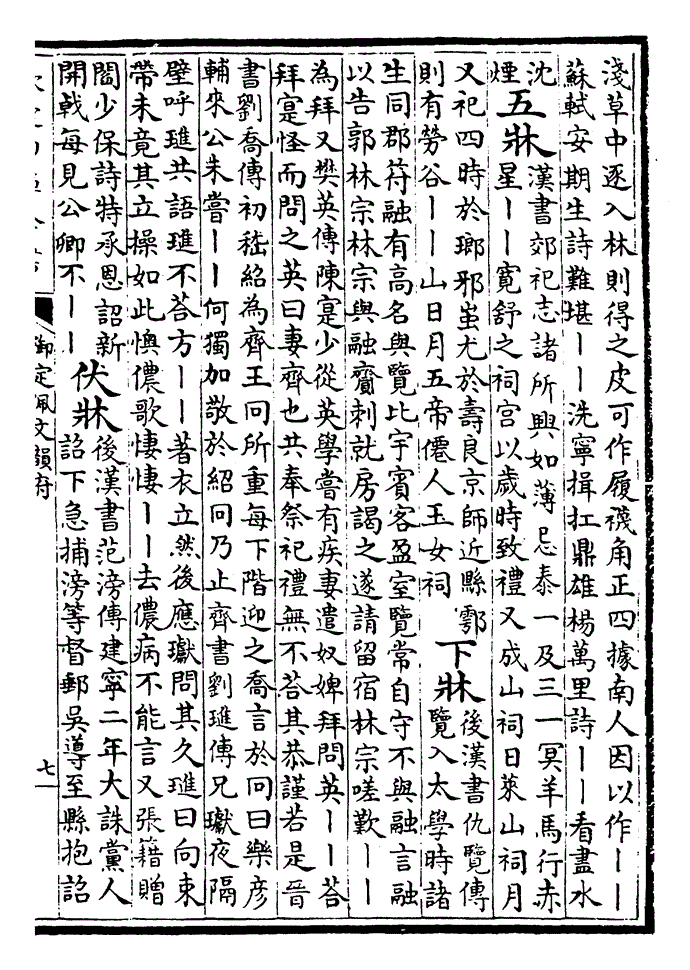 淺草中逐入林則得之皮可作履襪角正四據南人因以作丨丨
蘇軾安期生詩難堪丨丨洗寧揖扛鼎雄楊萬里詩丨丨看盡水
沈
煙
五牀
漢書郊祀志諸所興如薄忌泰一及三一冥羊馬行赤
星丨丨寛舒之祠宫以歲時致禮又成山祠日萊山祠月
又祀四時於瑯邪蚩尤於壽良京師近縣鄠
則有勞谷丨丨山日月五帝僊人玉女祠
下牀
後漢書仇覽傳
覽入太學時諸
生同郡符融有高名與覽比宇賓客盈室覽常自守不與融言融
以告郭林宗林宗與融齎刺就房謁之遂請留宿林宗嗟歎丨丨
為拜又樊英傳陳寔少從英學嘗有疾妻遣奴婢拜問英丨丨荅
拜寔怪而問之英曰妻齊也共奉祭祀禮無不荅其恭謹若是晉
書劉喬傳初嵇紹為齊王冏所重每下階迎之喬言於冏曰樂彦
輔來公未嘗丨丨何獨加敬於紹冏乃止齊書劉璡傳兄瓛夜隔
壁呼璡共語璡不荅方丨丨著衣立然後應瓛問其久璡曰向束
帶未竟其立操如此懊儂歌悽悽丨丨去儂病不能言又張籍贈
閻少保詩特承恩詔新
開戟每見公卿不丨丨
伏牀
後漢書范滂傳建寧二年大誅黨人
詔下急捕滂等督郵吳導至縣抱詔
御定佩文韻府
七